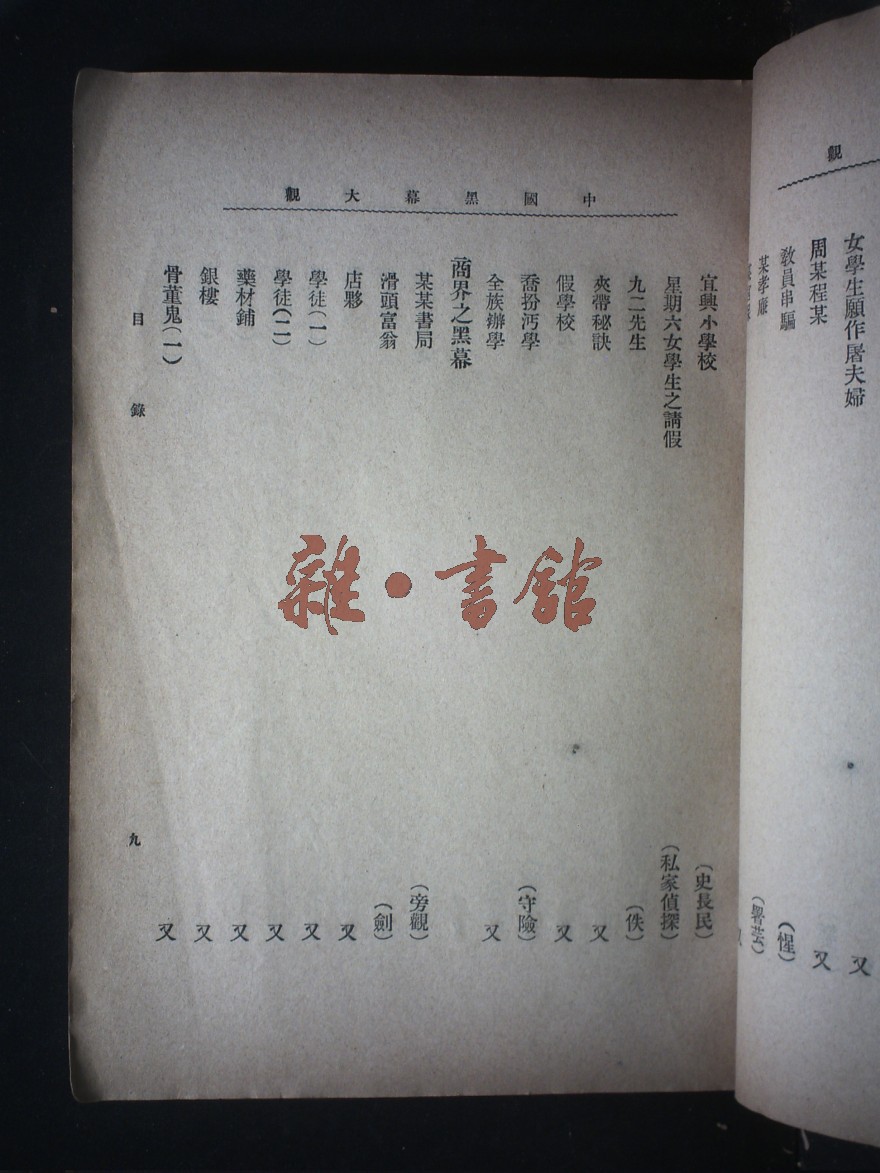 觀
女學生願作屠夫婦 又
周某程某 又
教員串騙 (惺)
某孝廉
中國黑幕大觀
宜興小學校 (史長民)
星期六女學生之請假 (私家偵探)
九二先生 (佚)
夾帶秘訣 又
假學校 又
喬扮沔學 (守險)
全族辦學 又
商界之黑幕
某某書局 (旁觀)
滑頭富翁 (劍)
店夥 又
學徒(一) 又
學徒(二) 又
藥材鋪 又
銀樓 又
骨董鬼(一) 又
目錄 九
雜·書館